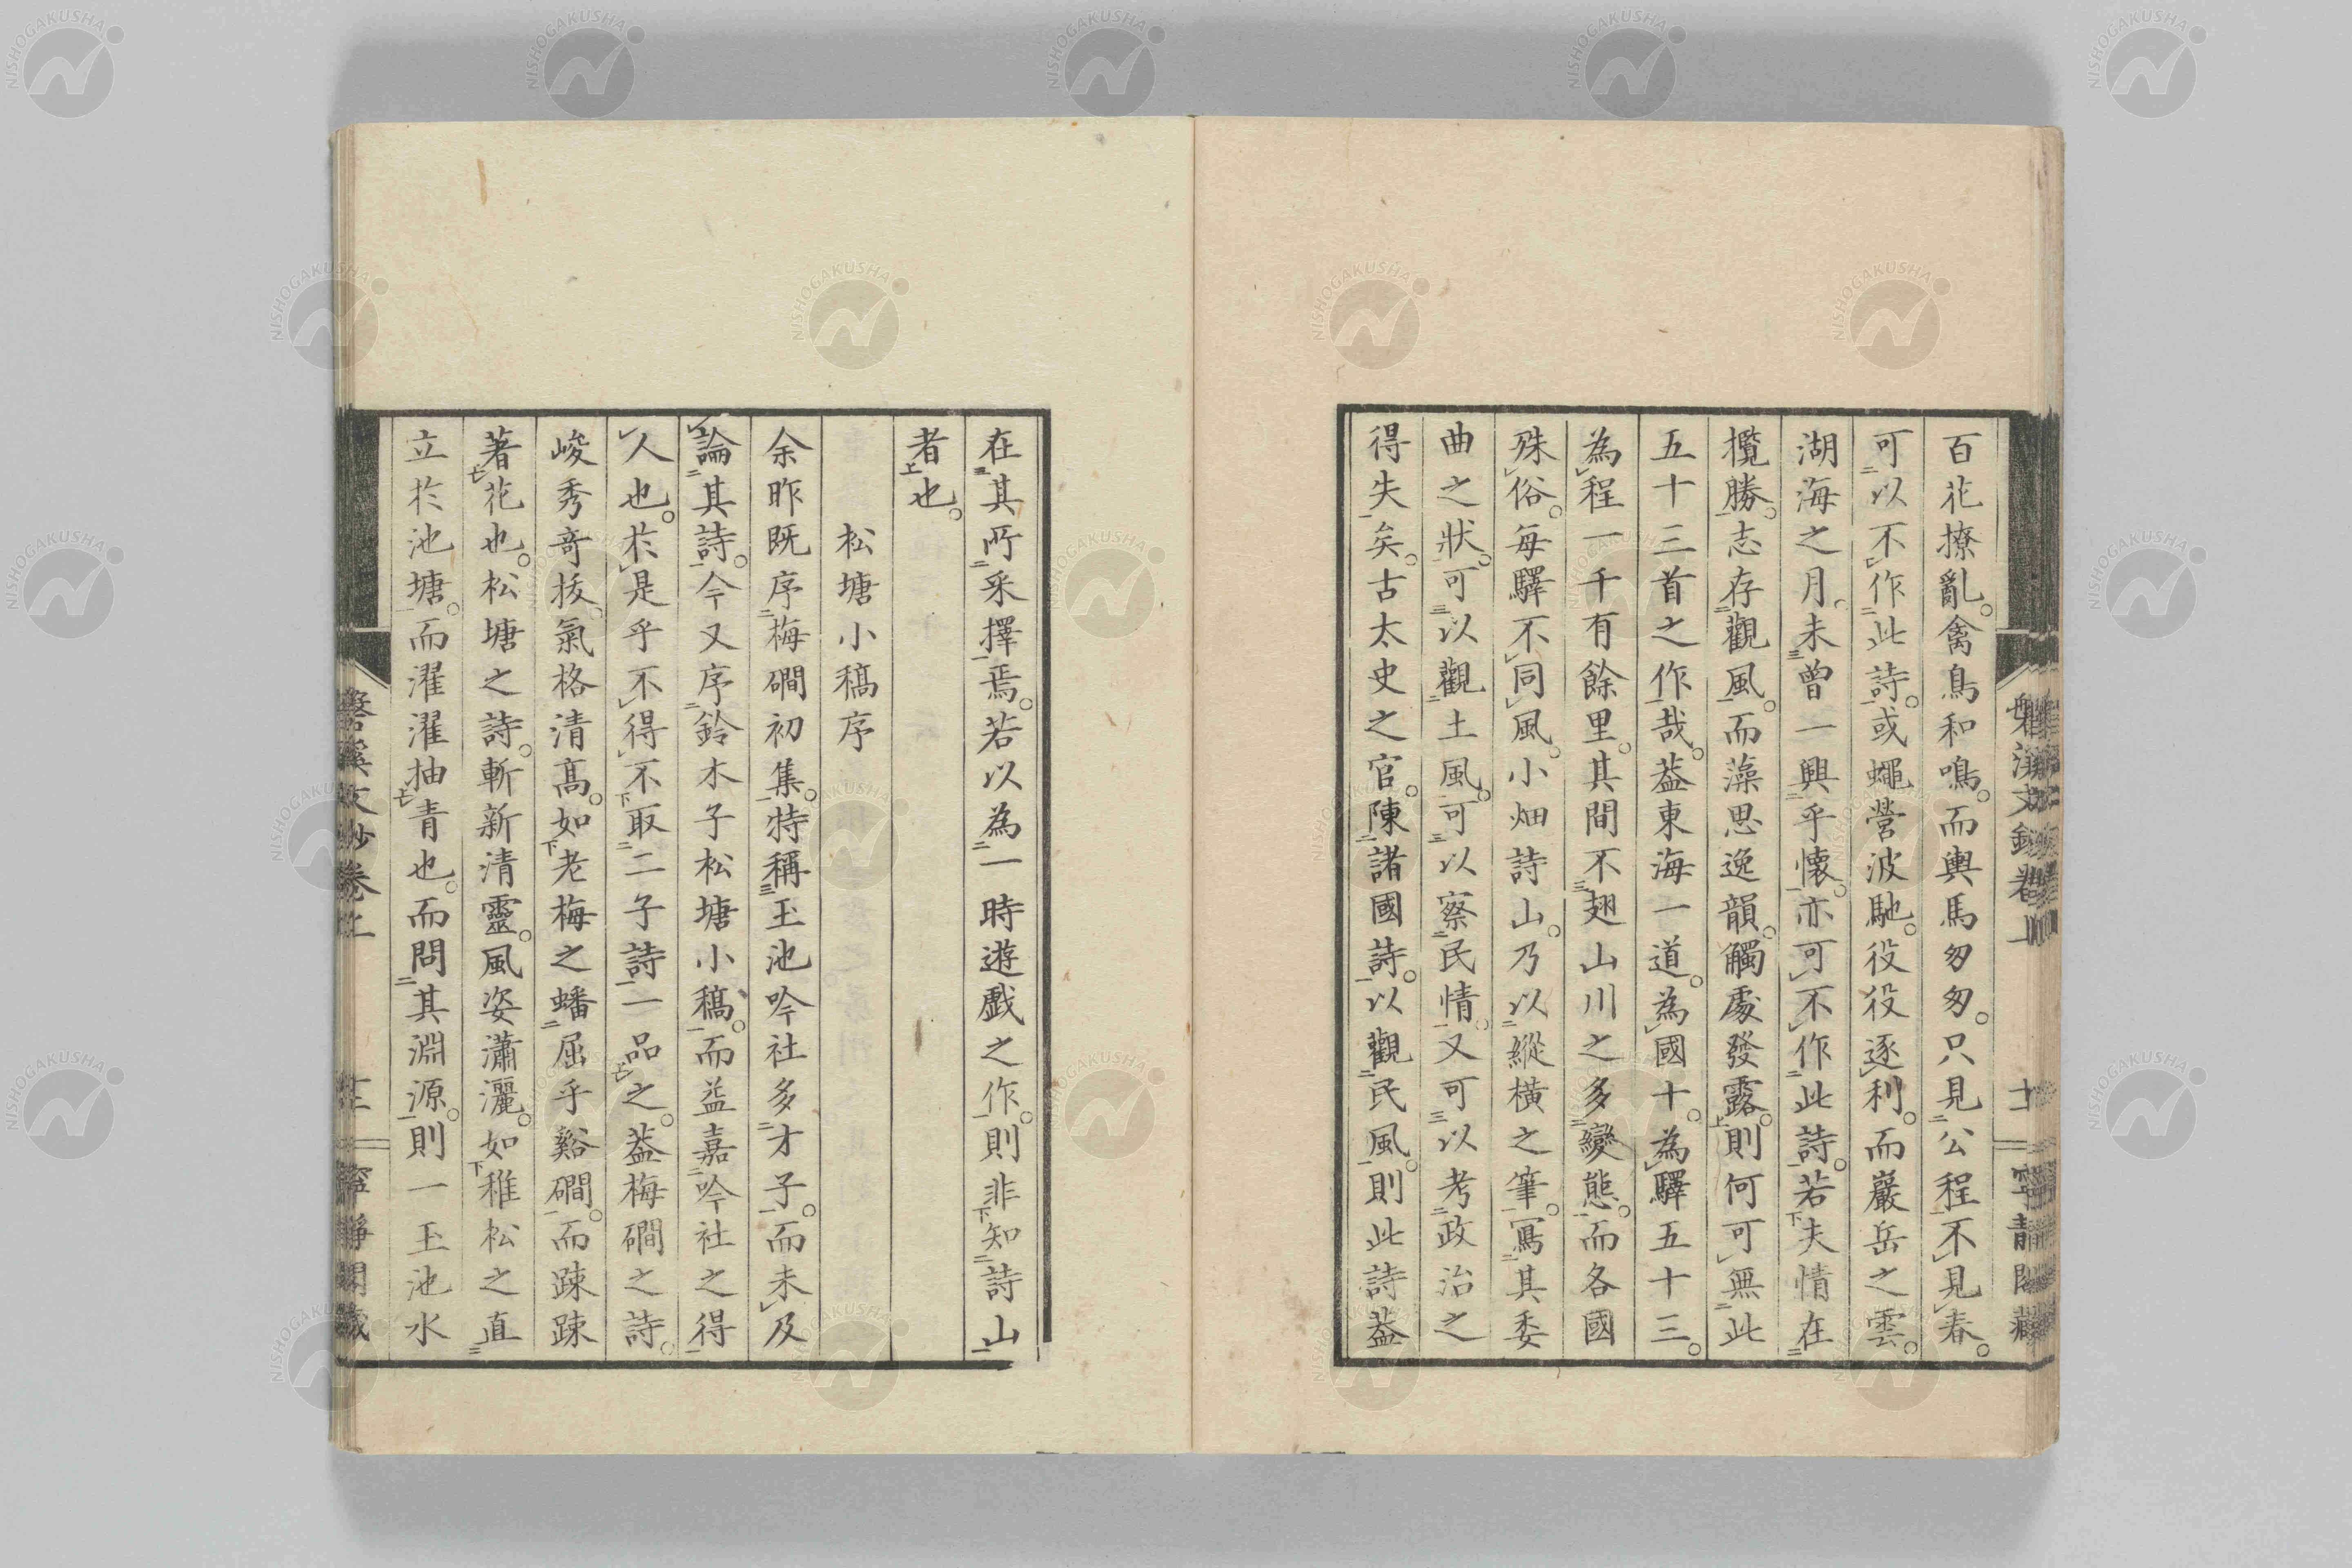 百花撩亂。禽鳥和鳴。而輿馬匆匆。只見公程不見春。
可以不作此詩。或蠅營波馳。役役逐利。而巖岳之雲。
湖海之月。未曾一興乎懷。亦可不作此詩。若夫情在
攬勝。志存觀風。而藻思逸韻。觸處發露。則何可無此
五十三首之作哉。葢東海一道。為國十。為驛五十三。
為程一千有餘里。其間不翅山川之多變態。而各國
殊俗。每驛不同風。小畑詩山。乃以縱橫之筆。寫其委
曲之狀。可以觀土風。可以察民情。又可以考政治之
得失矣。古太史之官。陳諸國詩。以觀民風。則此詩葢
在其所采擇焉。若以為一時遊戲之作。則非知詩山
者也。
松塘小稿序
余昨既序梅磵初集。特稱玉池吟社多才子。而未及
論其詩。今又序鈴木子松塘小稿。而益嘉吟社之得
人也。於是乎不得不取二子詩一品之。葢梅磵之詩。
峻秀奇拔。氣格清高。如老梅之蟠屈乎谿磵。而踈踈
著花也。松塘之詩。斬新清靈。風姿瀟灑。如稚松之直
立於池塘。而濯濯抽青也。而問其淵源。則一玉池水
NISHOGAKUSHA